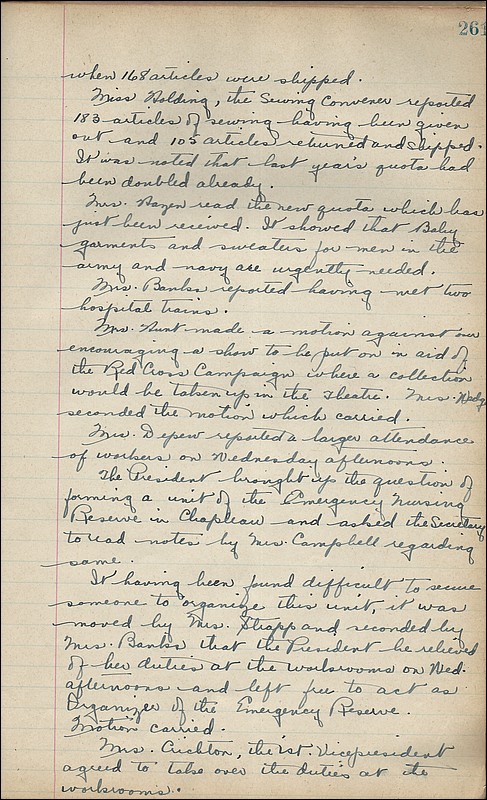 261
when 168 articles were shipped.
Miss Holding, the Sewing Convener reported
183 articles of sewing having been given
out and 105 articles returned and shipped.
It was noted that last year's quota had
been doubled already.
Mrs. Hazen read the new quota which has
just been received. It showed that Baby
garments and sweaters for men in the
army and navy are urgently needed.
Mrs. Banks reported having met two
hospital trains.
Mrs. Hunt made a motion against our
encouraging a show to be put on in aid of
the Red Cross Campaign where a collection
would be taken up in the Theatre. Mrs.
seconded the motion which carried.
Mrs. Depew reported a larger attendance
of workers on Wednesday afternoons.
The President brought up the question of
forming a unit of the Emergency Nursing
Reserve in Chapleau and asked the Secretary
to read notes by Mrs. Campbell regarding
same.
It having been found difficult to secure
someone to organize this unit, it was
moved by Mrs. and seconded by
Mrs. Banks that the President be relieved
of her duties at the workrooms on Wed.
afternoons and left free to act as
Organizer of the Emergency Reserve.
Motion carried.
Mrs. Crichton, the 1st. Vice president
agreed to take over the duties at the
workrooms.